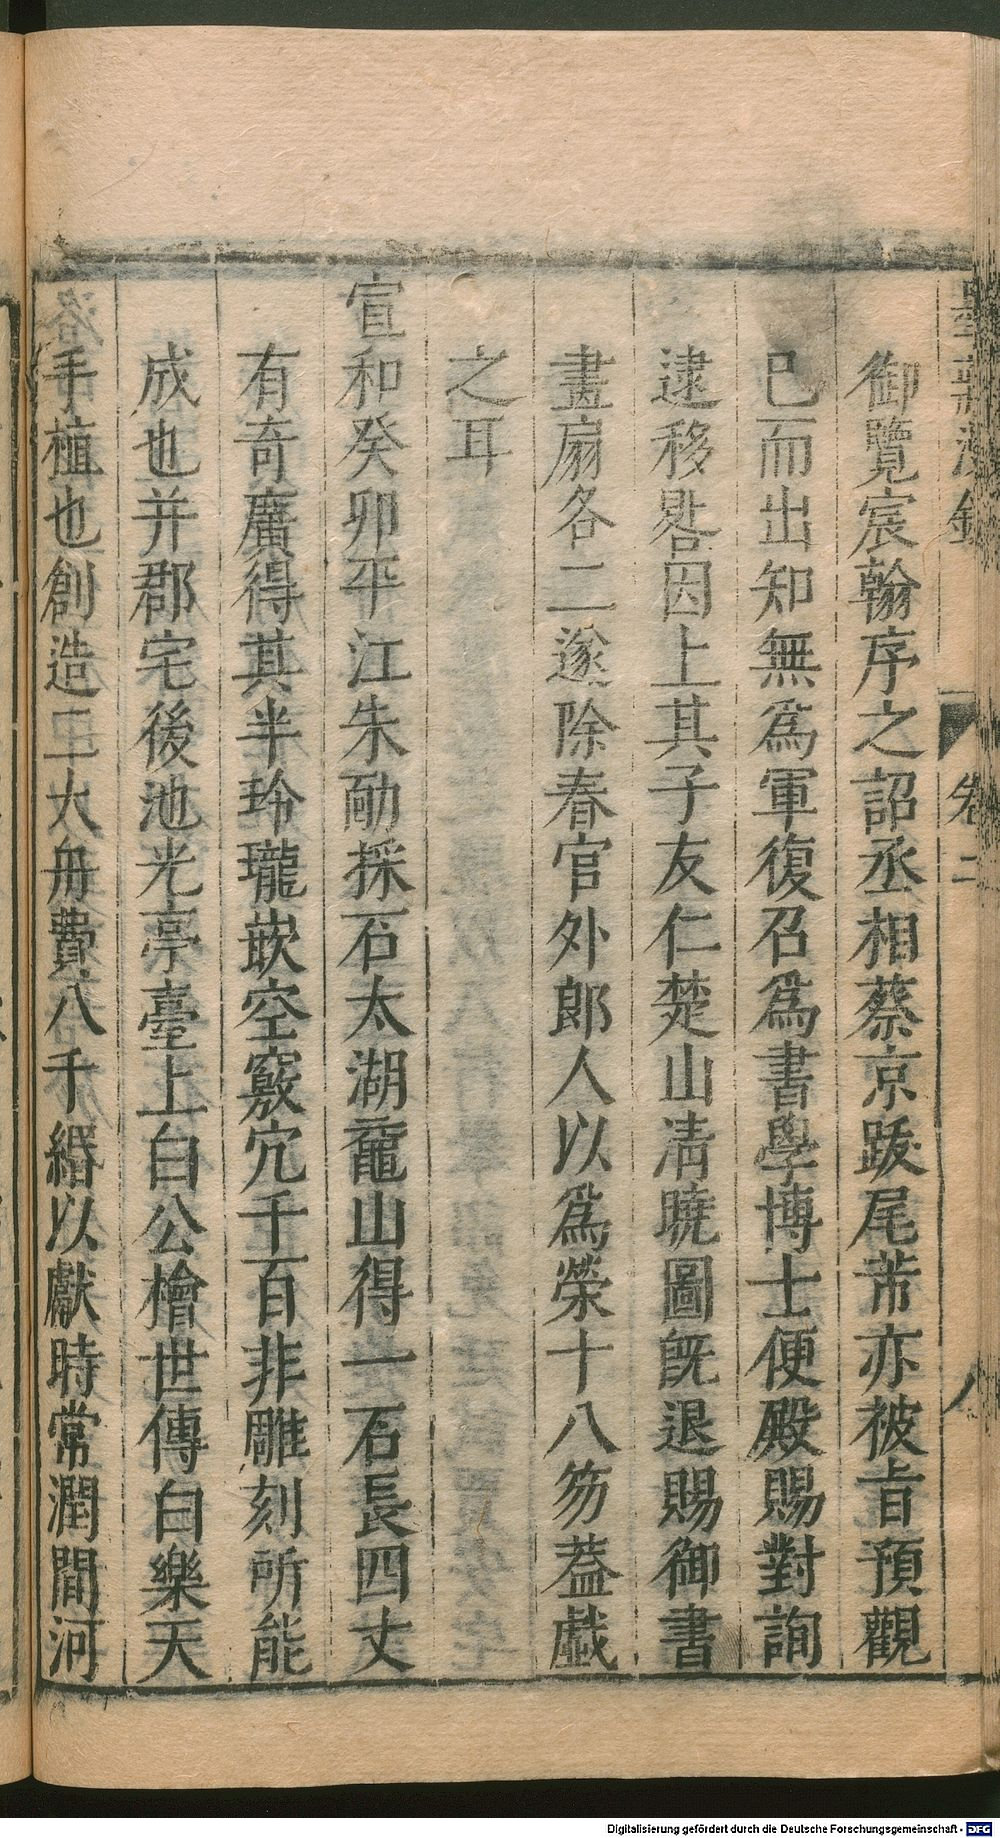 墨莊漫錄 卷二 八
御覽宸翰序之詔丞相蔡京跋尾芾亦被旨預觀
已而出知無爲軍復召爲書學博士便殿賜對詢
逮移晷因上其子友仁楚山淸曉圖旣退賜御書
畫扇各二遂除春官外郎人以爲榮十八笏蓋戯
之耳
宣和癸卯平江朱勔採石太湖黿山得一石長四丈
有奇廣得其半玲瓏嵌空竅穴千百非雕刻所能
成也并郡宅後池光亭臺上白公檜世傳白樂天
手植也創造二大舟費八千緡以獻時常潤間河
Digitalisierung gefördert durch die Deutsche Forschungsgemeinschaft - DFG